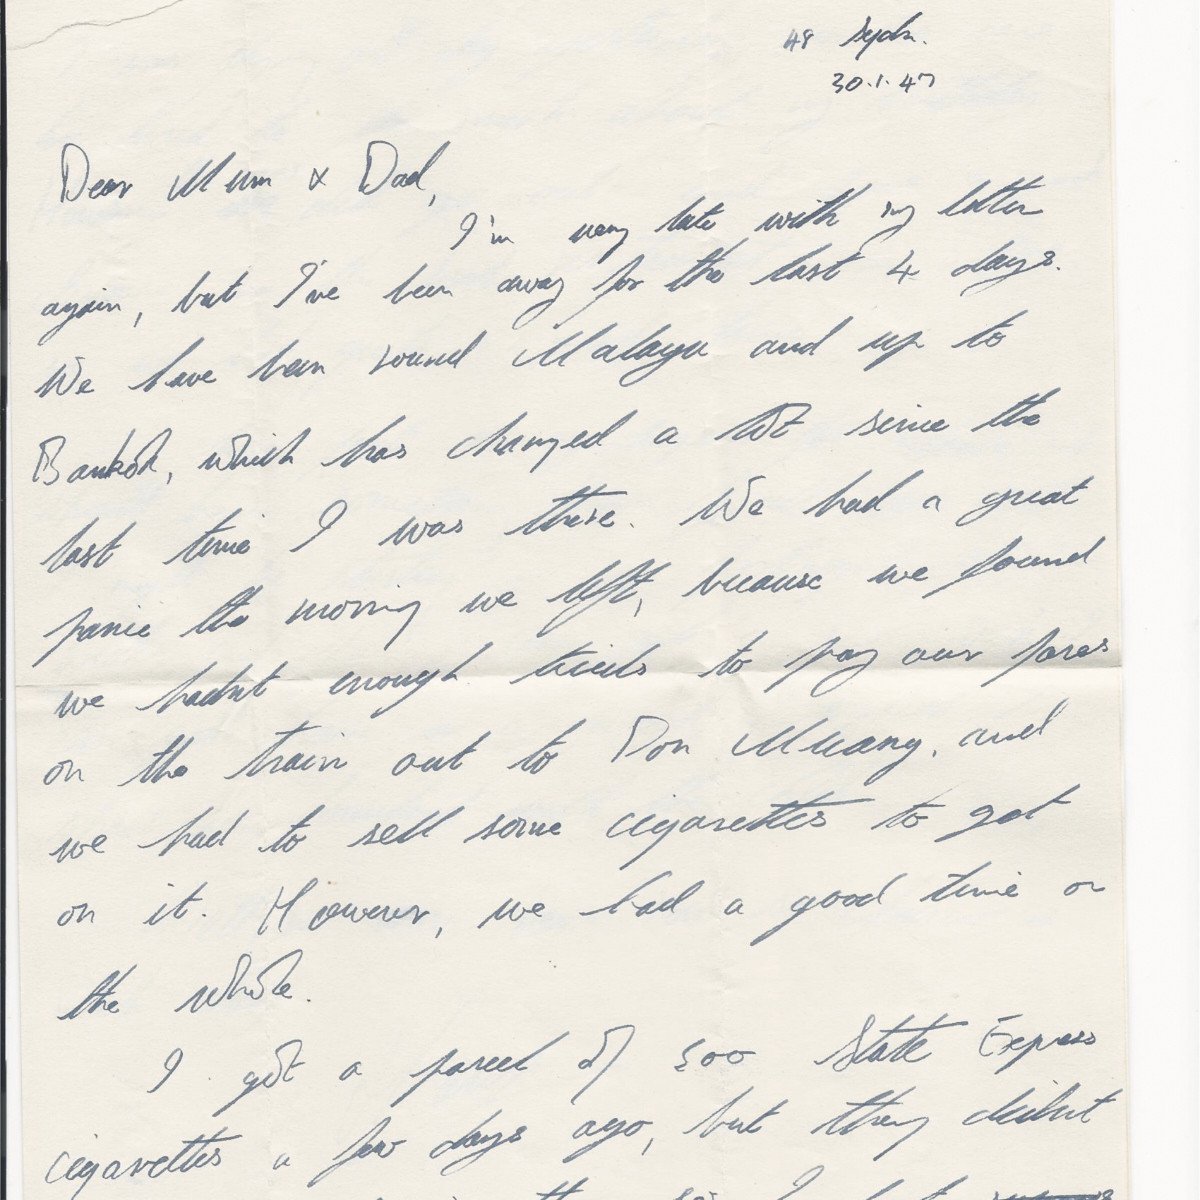 48 Sqdn.
30.1.47
Dear Mum & Dad,
I'm very late with my letter
again, but I've been away for the last 4 days.
We have been round Malaya and up to
Bankok, which has changed a lot since the
last time I was there. We had a great
panic the morning we left, because we found
we hadn't enough ticals to pay our fares
on the train out to Don Muang, and
we had to sell some cigarettes to get
on it. However, we had a good time on
the whole.
I got a parcel of 500 State Express
cigarettes a few days ago, but they didn't